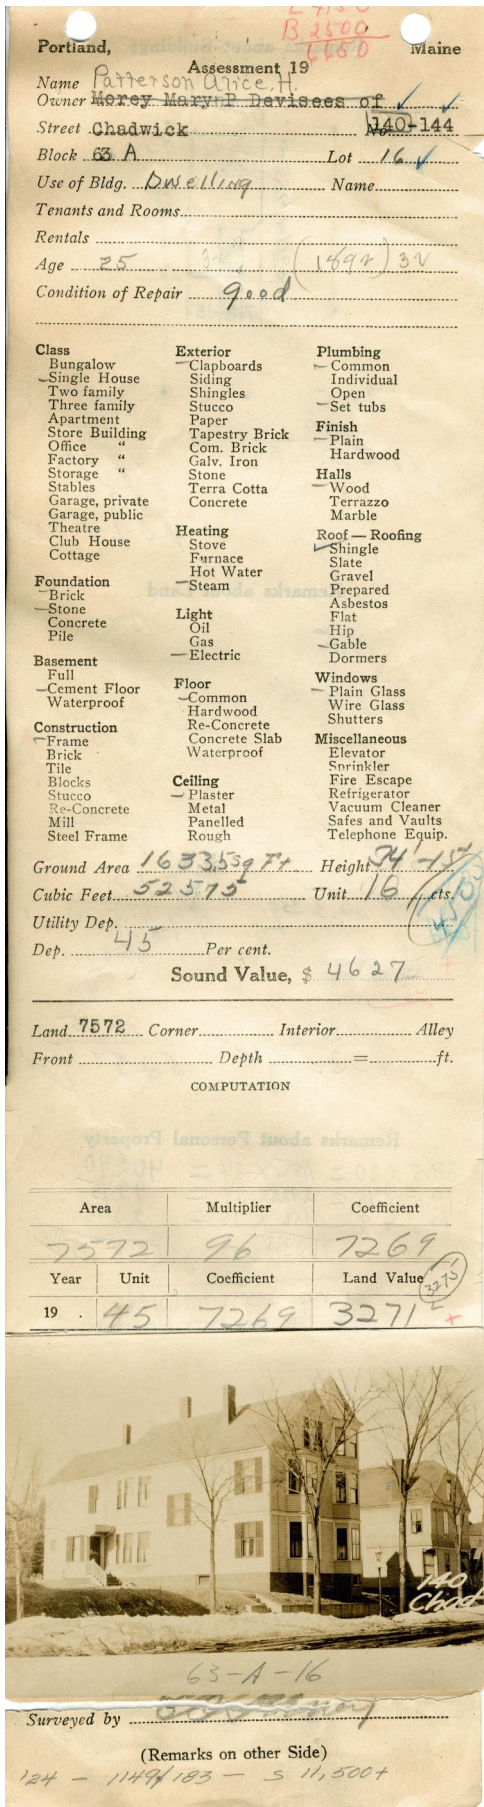 B 2500
6650
Portland, Maine
Assessment 19
Name Patterson Alice. H.
Owner Morey Mary P Devisees of
Street Chadwick No 140-144
Block 63 A Lot 16
Use of Bldg. Dwelling Name
Tenants and Rooms
Rentals
Age 25 (1892) 32
Condition of Repair good
Class
Bungalow
Single House
Two family
Three family
Apartment
Store Building
Office "
Factory "
Storage "
Stables
Garage, private
Garage, public
Theatre
Club House
Cottage
Foundation
Brick
Stone
Concrete
Pile
Basement
Full
Cement Floor
Waterproof
Construction
Frame
Brick
Tile
Blocks
Stucco
Re-Concrete
Mill
Steel Frame
Exterior
Clapboards
Siding
Shingles
Stucco
Paper
Tapestry Brick
Com. Brick
Galv. Iron
Stone
Terra Cotta
Concrete
Heating
Stove
Furnace
Hot Water
Steam
Light
Oil
Gas
Electric
Floor
Common
Hardwood
Re-Concrete
Concrete Slab
Waterproof
Ceiling
Plaster
Metal
Panelled
Rough
Plumbing
Common
Individual
Open
Set tubs
Finish
Plain
Hardwood
Halls
Wood
Terrazzo
Marble
Roof — Roofing
Shingle
Slate
Gravel
Prepared
Asbestos
Flat
Hip
Gable
Dormers
Windows
Plain Glass
Wire Glass
Shutters
Miscellaneous
Elevator
Sprinkler
Fire Escape
Refrigerator
Vacuum Cleaner
Safes and Vaults
Telephone Equip.
Ground Area 1633.5 sq Ft Height 34'-15'
Cubic Feet 52575 Unit 16 cts.
Utility Dep.
Dep. 45 Per cent.
Sound Value, $ 4627
Land 7572 Corner Interior Alley
Front Depth = ft.
COMPUTATION
Area Multiplier Coefficient
7572 96 7269
Year Unit Coefficient Land Value 3275
19 . 45 7269 3271
140
Chad
63-A-16
Surveyed by
(Remarks on other Side)
'24 - 1149/183 - S 11,500+